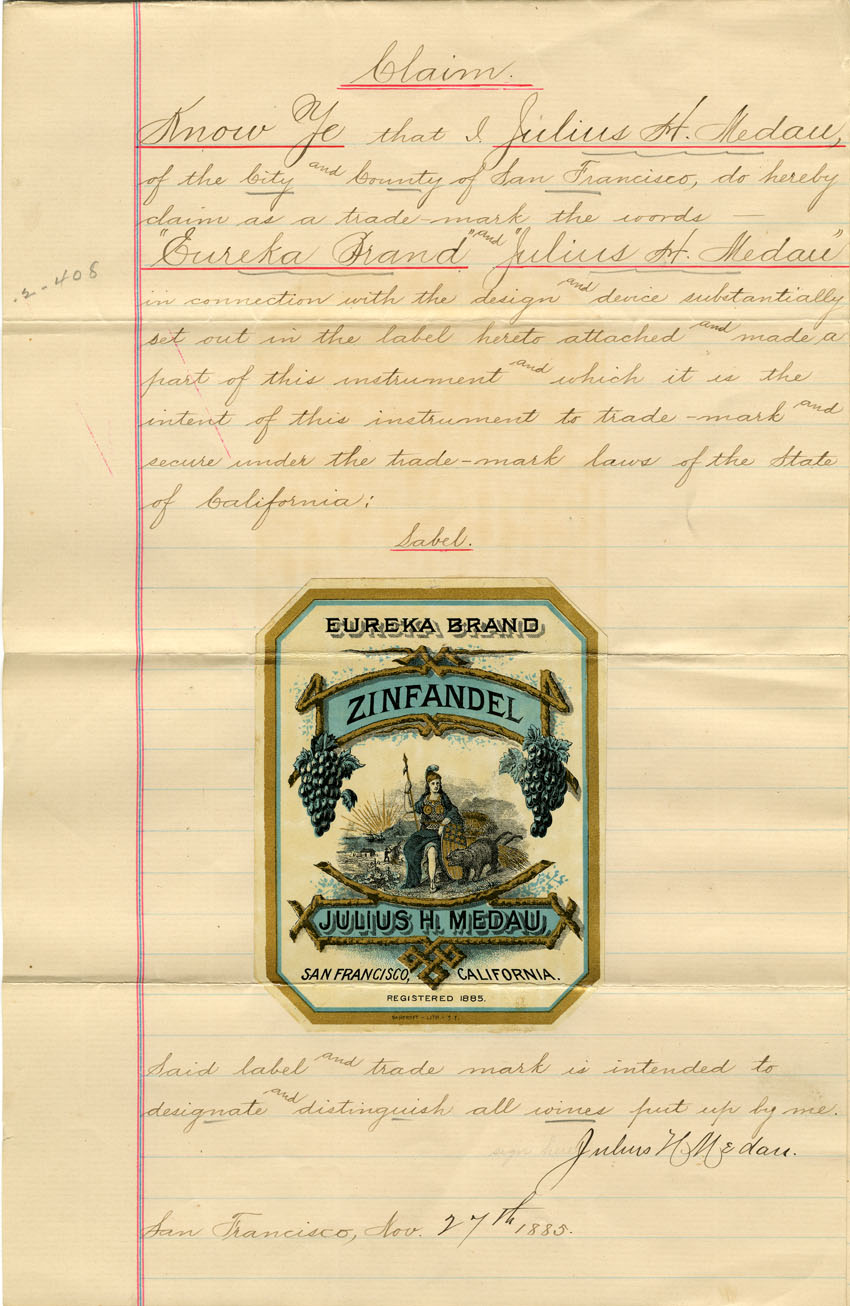 Claim.
Know Ye that I Julius H. Medau,
of the City and County of San Francisco, do hereby
claim as a trade-mark the words —
"Eureka Brand" and "Julius H. Medau"
2-408
in connection with the design and device substantially
set out in the label hereto attached and made a
part of this instrument and which it is the
intent of this instrument to trade-mark and
secure under the trade-mark laws of the State
of California:
Label.
EUREKA BRAND
ZINFANDEL
JULIUS H. MEDAU,
SAN FRANCISCO, CALIFORNIA.
REGISTERED 1885.
BANCROFT - LITH - S.F.
Said label and trade mark is intended to
designate and distinguish all wines put up by me.
sign here Julius H Medau.
San Francisco, Nov. 27th 1885.